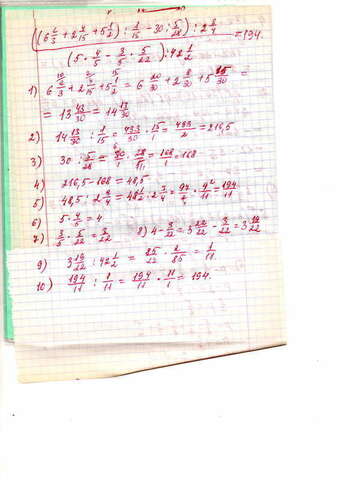 ((6 2/3 + 2 4/15 + 5 1/2) : 1/15 - 30 : 5/28) : 2 3/4
(5 · 4/5 - 3/5 · 5/22) : 42 1/2 = 194.
1) 6 2/3 + 2 4/15 + 5 1/2 = 6 20/30 + 2 8/30 + 5 15/30 =
= 13 43/30 = 14 13/30
2) 14 13/30 : 1/15 = 433/30 · 15/1 = 433/2 = 216,5
3) 30 : 5/28 = 30/1 · 28/5 = 168/1 = 168
4) 216,5 - 168 = 48,5
5) 48,5 : 2 3/4 = 48 1/2 : 2 3/4 = 97/2 · 4/11 = 194/11
6) 5 · 4/5 = 4
7) 3/5 · 5/22 = 3/22 8) 4 - 3/22 = 3 22/22 - 3/22 = 3 19/22
9) 3 19/22 : 42 1/2 = 85/22 · 2/85 = 1/11
10) 194/11 : 1/11 = 194/11 · 11/1 = 194.